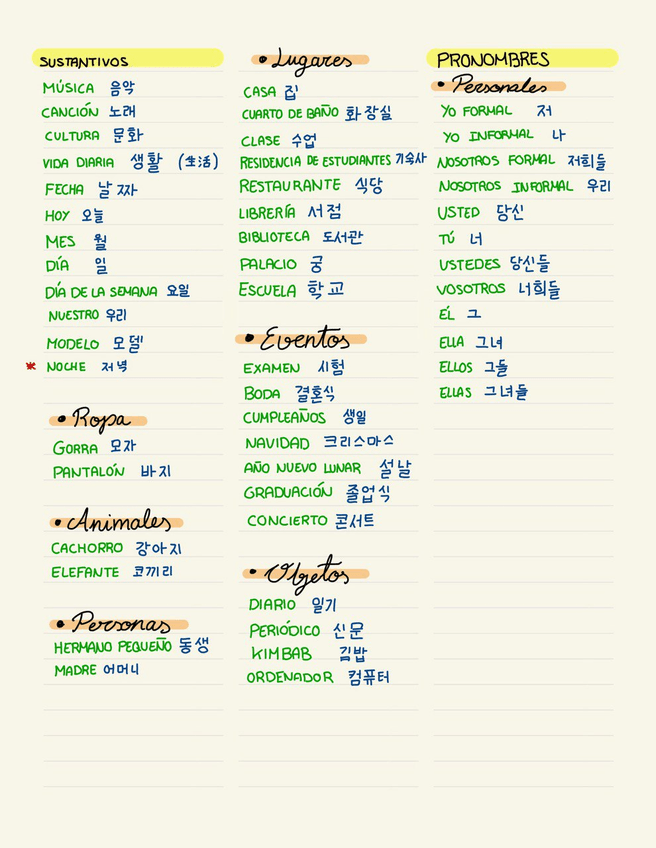 SUSTANTIVOS
MÚSICA 음악
CANCIÓN 노래
CULTURA 문화
VIDA DIARIA 생활 (生活)
FECHA 날짜
HOY 오늘
MES 월
DÍA 일
DÍA DE LA SEMANA 요일
NUESTRO 우리
MODELO 모델
* NOCHE 저녁
• Ropa
GORRA 모자
PANTALÓN 바지
• Animales
CACHORRO 강아지
ELEFANTE 코끼리
• Personas
HERMANO PEQUEÑO 동생
MADRE 어머니
• Lugares
CASA 집
CUARTO DE BAÑO 화장실
CLASE 수업
RESIDENCIA DE ESTUDIANTES 기숙사
RESTAURANTE 식당
LIBRERÍA 서점
BIBLIOTECA 도서관
PALACIO 궁
ESCUELA 학교
• Eventos
EXAMEN 시험
BODA 결혼식
CUMPLEAÑOS 생일
NAVIDAD 크리스마스
AÑO NUEVO LUNAR 설날
GRADUACIÓN 졸업식
CONCIERTO 콘서트
• Objetos
DIARIO 일기
PERIÓDICO 신문
KIMBAB 김밥
ORDENADOR 컴퓨터
PRONOMBRES
• Personales
YO FORMAL 저
YO INFORMAL 나
NOSOTROS FORMAL 저희들
NOSOTROS INFORMAL 우리
USTED 당신
TÚ 너
USTEDES 당신들
VOSOTROS 너희들
ÉL 그
ELLA 그녀
ELLOS 그들
ELLAS 그녀들